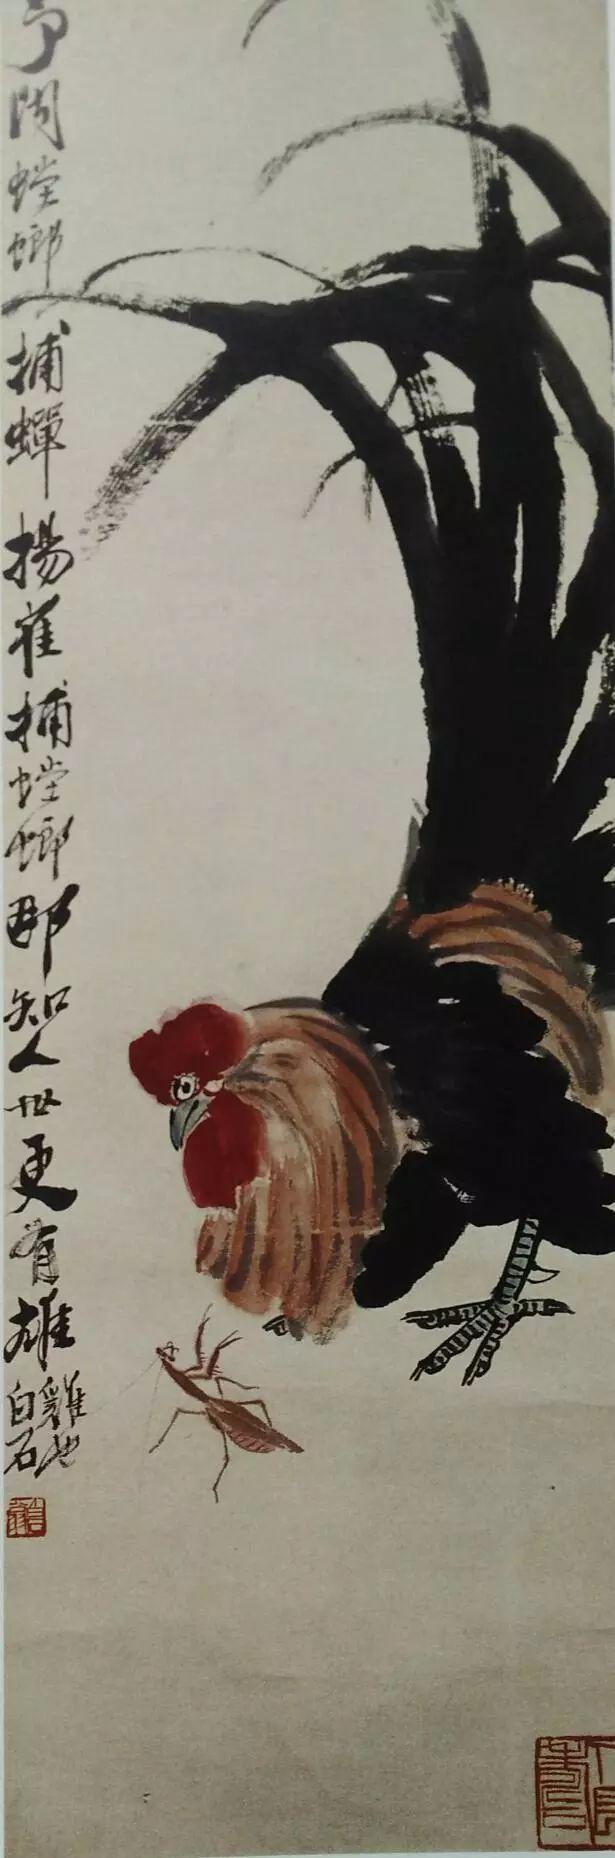 予聞螳螂捕蟬揚雀捕螳螂那知人世更有雄
雞也
白石